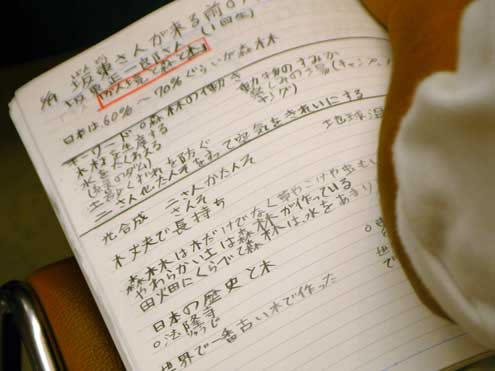 坂第さんが来る前の
(1回生)
環境と森と木
日本は、60%〜70%ぐらいが森林
キーワード ○森林の働き
動物のすみか
楽しみの場(キャンプ、
木材を生産する
水をたくわえる
(緑のダム)
土砂くずれを防ぐ
二さん化たんそをすって空気をきれいにする
地球温
光合成 二さんかたんそ
さんそ
木 丈夫で長持ち
森林は木だけでなく草やこけや虫もい
やわらかい土は森林が作っている
田畑にくらべて森林は、水をあまり
日本の歴史と木
○法隆寺
世界で一番古い木で作った